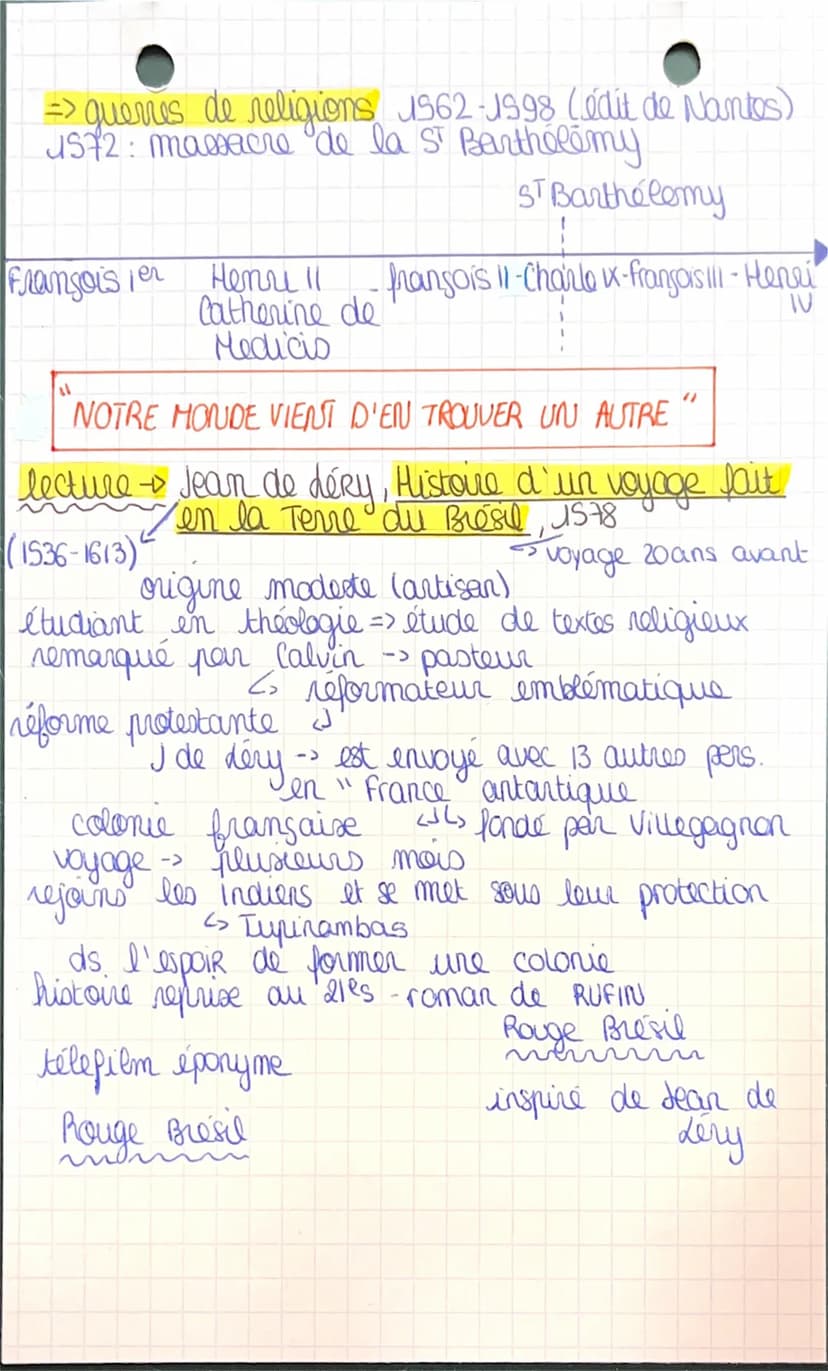 => guerres de religions 1562-1598 (édit de Nantes)
1572 : massacre de la St Barthélémy
St Barthélemy
François 1er Henri II - françois II - Charle IX - françois III - Henri IV
Catherine de
Medicis
"NOTRE MONDE VIENT D'EN TROUVER UN AUTRE"
lecture -> Jean de léry, Histoire d'un voyage fait
en la Terre du Brésil, 1578
(1536-1613) -> voyage 20 ans avant
origine modeste (artisan)
étudiant en théologie => étude de textes religieux
remarqué par Calvin -> pasteur
↳ réformateur emblématique
réforme protestante ↲
J de léry -> est envoyé avec 13 autres pers.
en "France antartique
colonie française ↲ ↳ fondé par Villegagnon
voyage -> plusieurs mois
rejoins les indiens et se met sous leur protection
↳ Tupinambas
ds l'espoir de former une colonie
histoire reprise au 21es - roman de RUFIN
Rouge Brésil
télefilm éponyme
inspiré de Jean de
Léry
Rouge Brésil